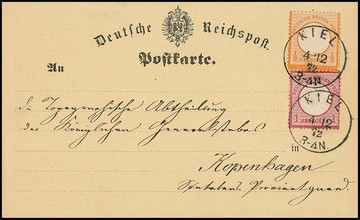 Deutsche Reichspost.
Postkarte.
An
die Topographische Abtheilung
des Königlichen Generalstabes
in
Kopenhagen
KIEL
4 12
72
3-4N.
KIEL
4 12
72
3-4N.
1